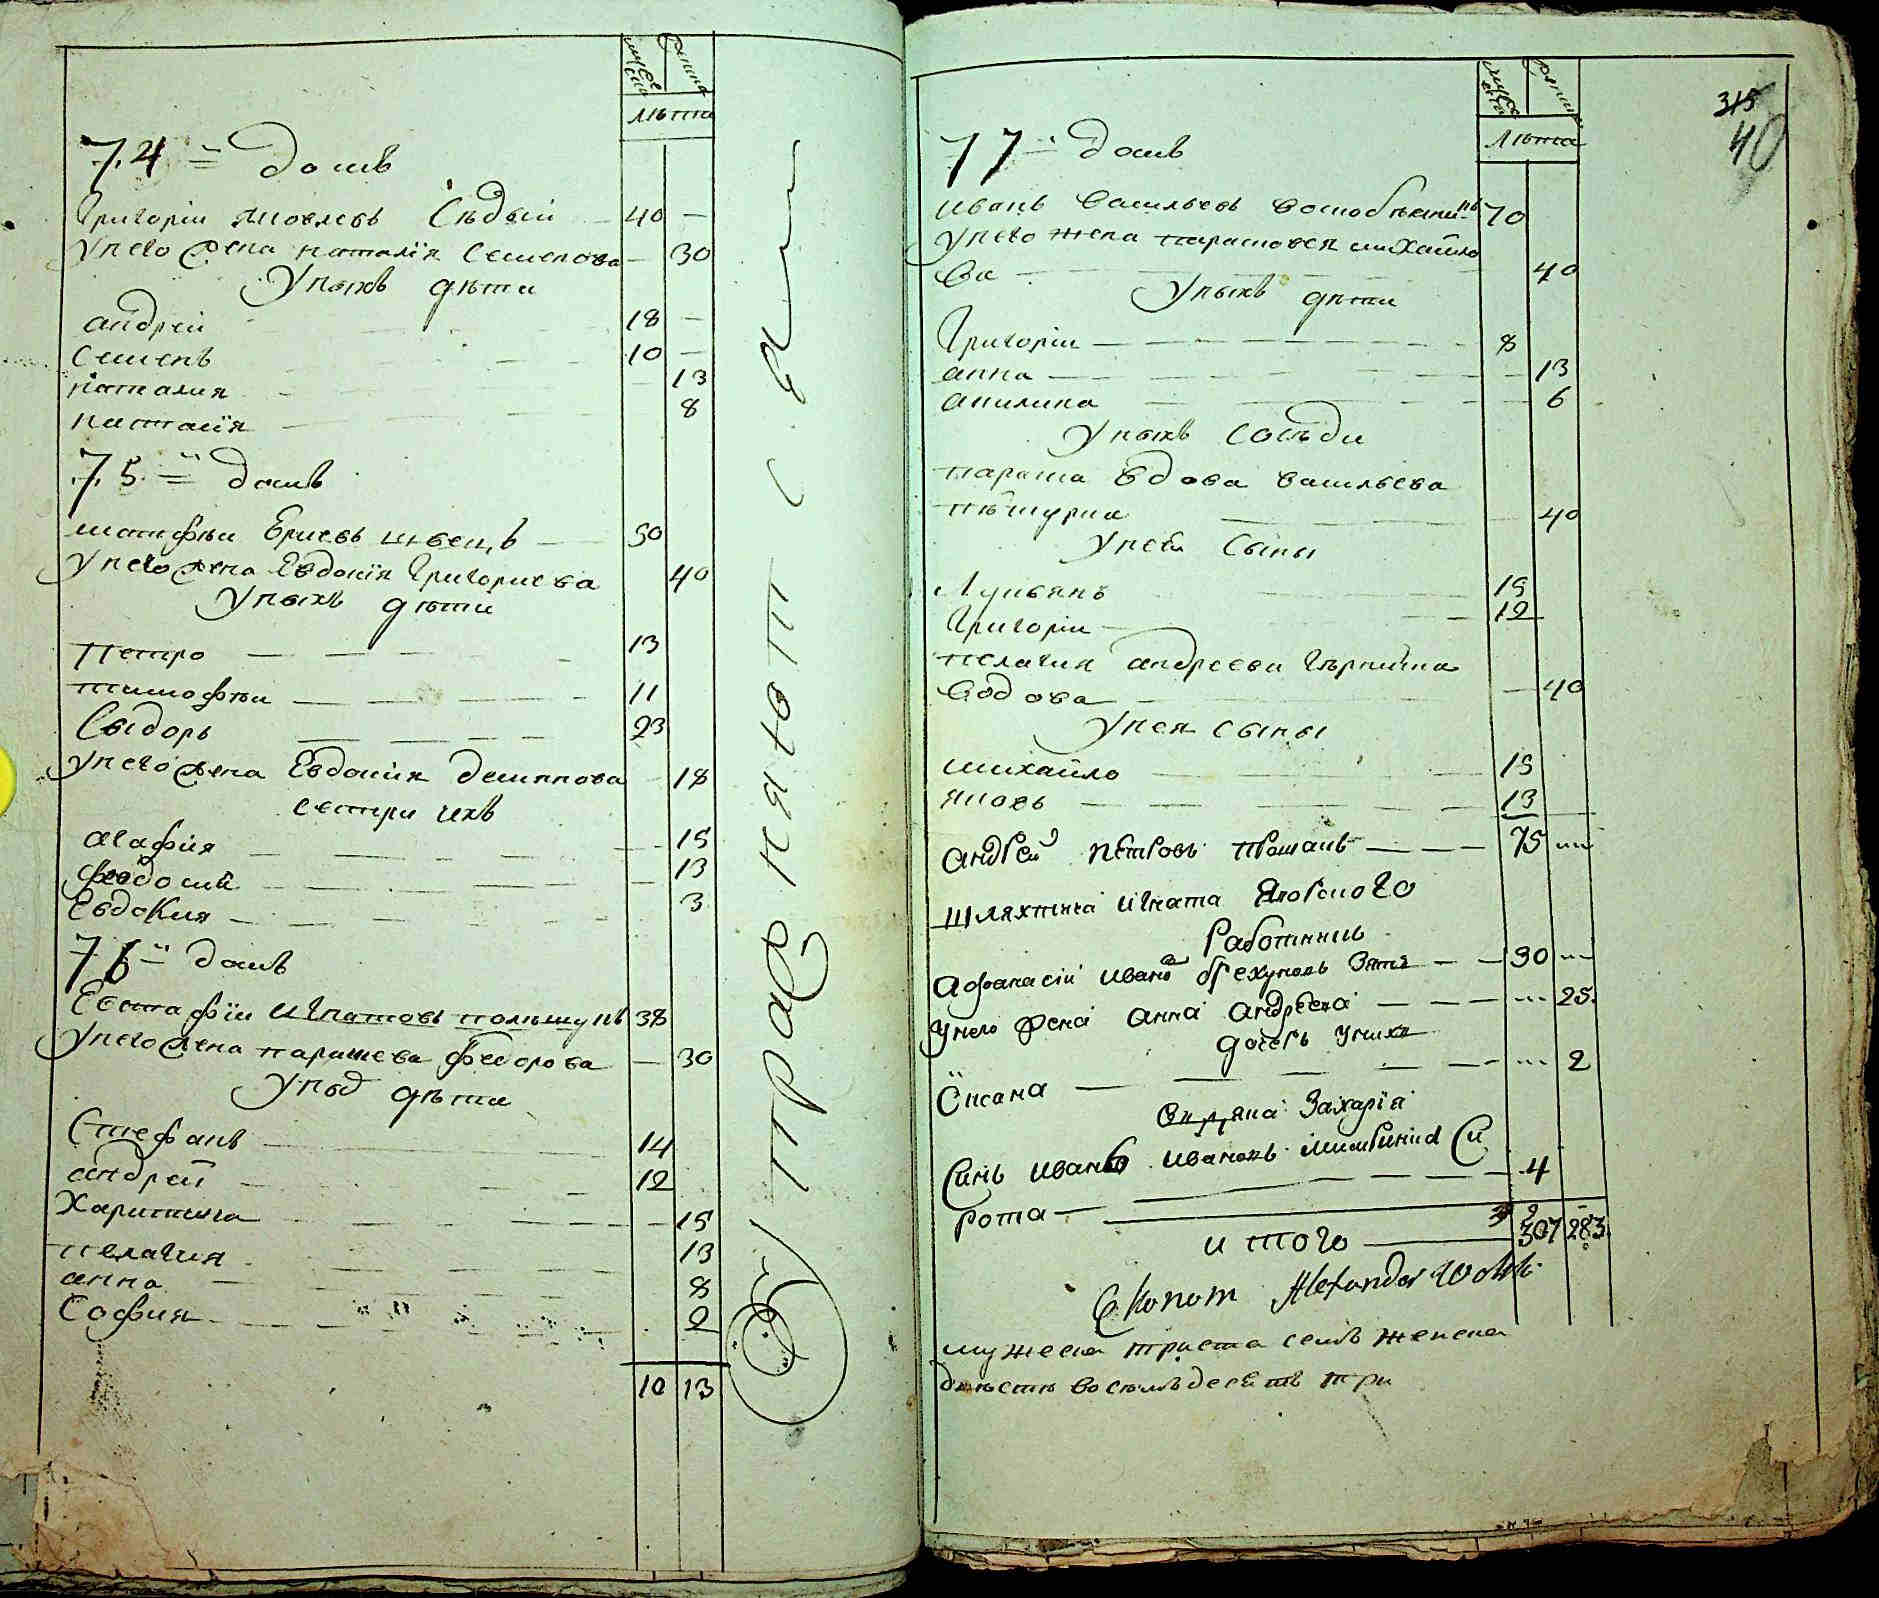 мужеска
женска
лѣта
74 й домъ
Григоріи Яковлевъ Сѣдый 40 —
У него жена наталія Семенова — 30
У ныхъ дѣти
андрей 18 —
Семенъ 10 —
наталия — 13
настасія 8
75 й домъ
матфѣи Юриевъ швецъ 50
У него жена Евдокія Григориева 40
У ныхъ дѣти
Петро 13
тимофѣи 11
Сыдоръ 23
У него жена Евдокия демянова — 18
сестри ихъ
агафия 15
феодосия 13
Евдокия 3
76 й домъ
Евстафіи Игнатовъ 38
У него жена параскева федорова — 30
У ныхъ дѣти
Стефанъ 14
андрей 12
Харитина 15
пелагия 13
анна 8
София 2
10 13
315
40
мужеска
женска
лѣта
77 й домъ
иванъ Васильевъ 70
У него жена парасковея михайло
ва 40
У ныхъ дѣти
Григоріи 8
анна — 13
акилина — 6
У ныхъ сосѣди
параска вдова васильева
40
У нея сыны
Лукьянъ 15
Григоріи — 12
пелагия андреева
вдова — 40
У нея сыны
михайло 15
яковъ 13
андрей петровъ 75
шляхтича игната
работникъ
афанасіи иванов брехуновъ зять 30
У него жена анна андреева 25
дочерь у нихъ
Оксана 2
захарія
Синь иванъ ивановъ Си
рота 4
итого 307 283
Ekonom Alexander
мужеска триста семъ женска
двѣстѣ восемъдесятъ три